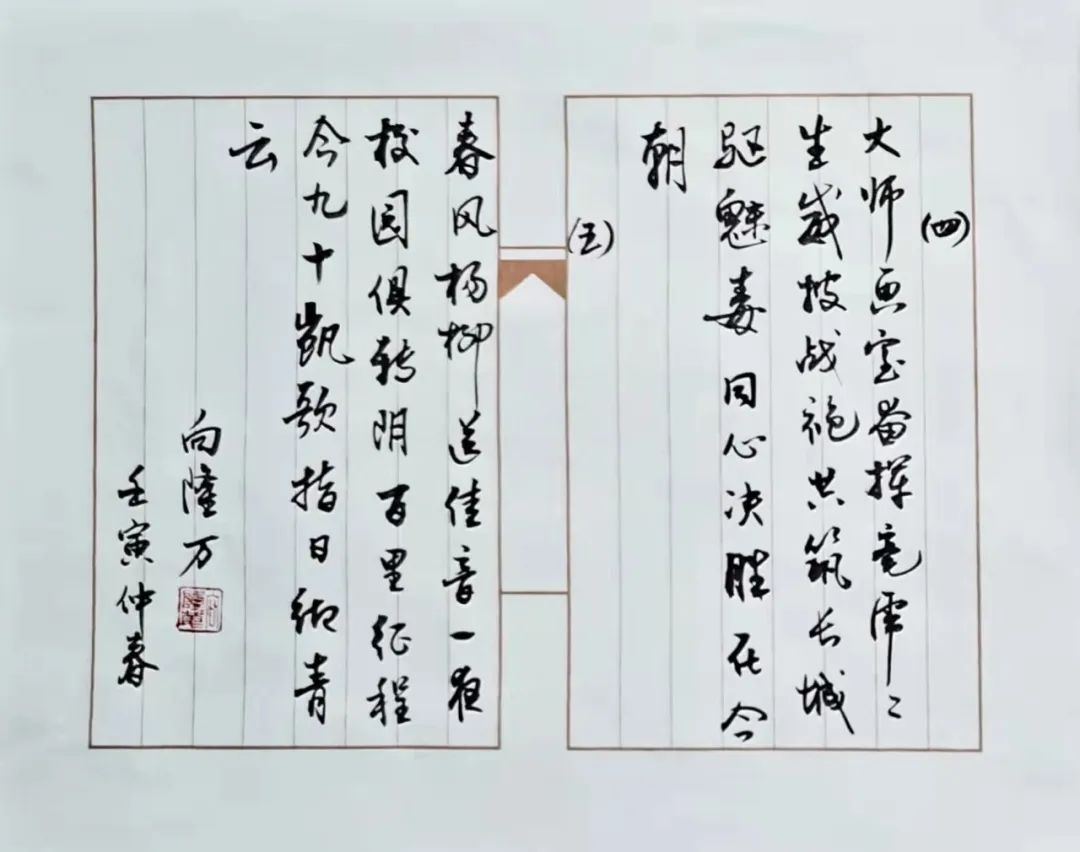 (四)
大师画室奋挥毫虎〻
生威披战袍共筑长城
驱魅毒同心决胜在今
朝
(五)
春风杨柳送佳音一夜
校园俱转阴百里征程
今九十凯歌指日御青
云
向隆万
壬寅仲春